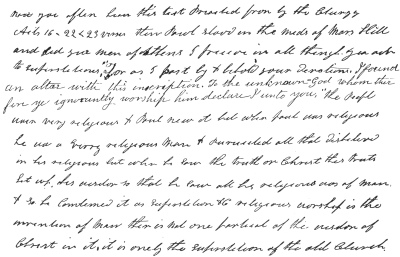 now you often hear this text Preached from by the Clergy
Acts 16 - 22 & 23 verses then Paul stood in the meds of Mars Hill
and sed yee men of Athens I preceve in all things you are
to superstitious," for as I past by & beheld your Devotions, I found
an alter with this inscription. To the unknown God whom ther
fore ye ignorently worship him declare I unto you," the People
ware very religious & Paul new it but when Paul was religious
he was a Very religious Man & Persecuted all that Disbelieved
in his religious but when he saw the truth on Christ this
he saw all his religious was of man.
& so he Condemned it as Superstition & religious worship is the
invention of Man their is not one partical of the wisdom of
Christ in it, it is onely the superstition of the old Church.